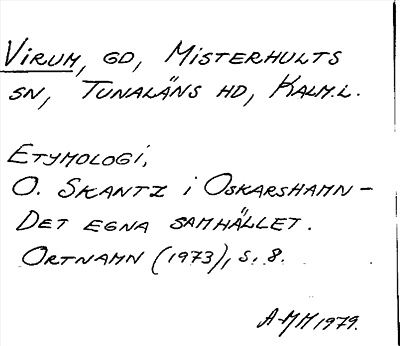 VIRUM, GD, MISTERHULTS
SN, TUNALÄNS HD, KALM.L.
ETYMOLOGI,
O. SKANTZ i OSKARSHAMN –
DET EGNA SAMHÄLLET.
ORTNAMN (1973), S. 8.
A-MH 1979.